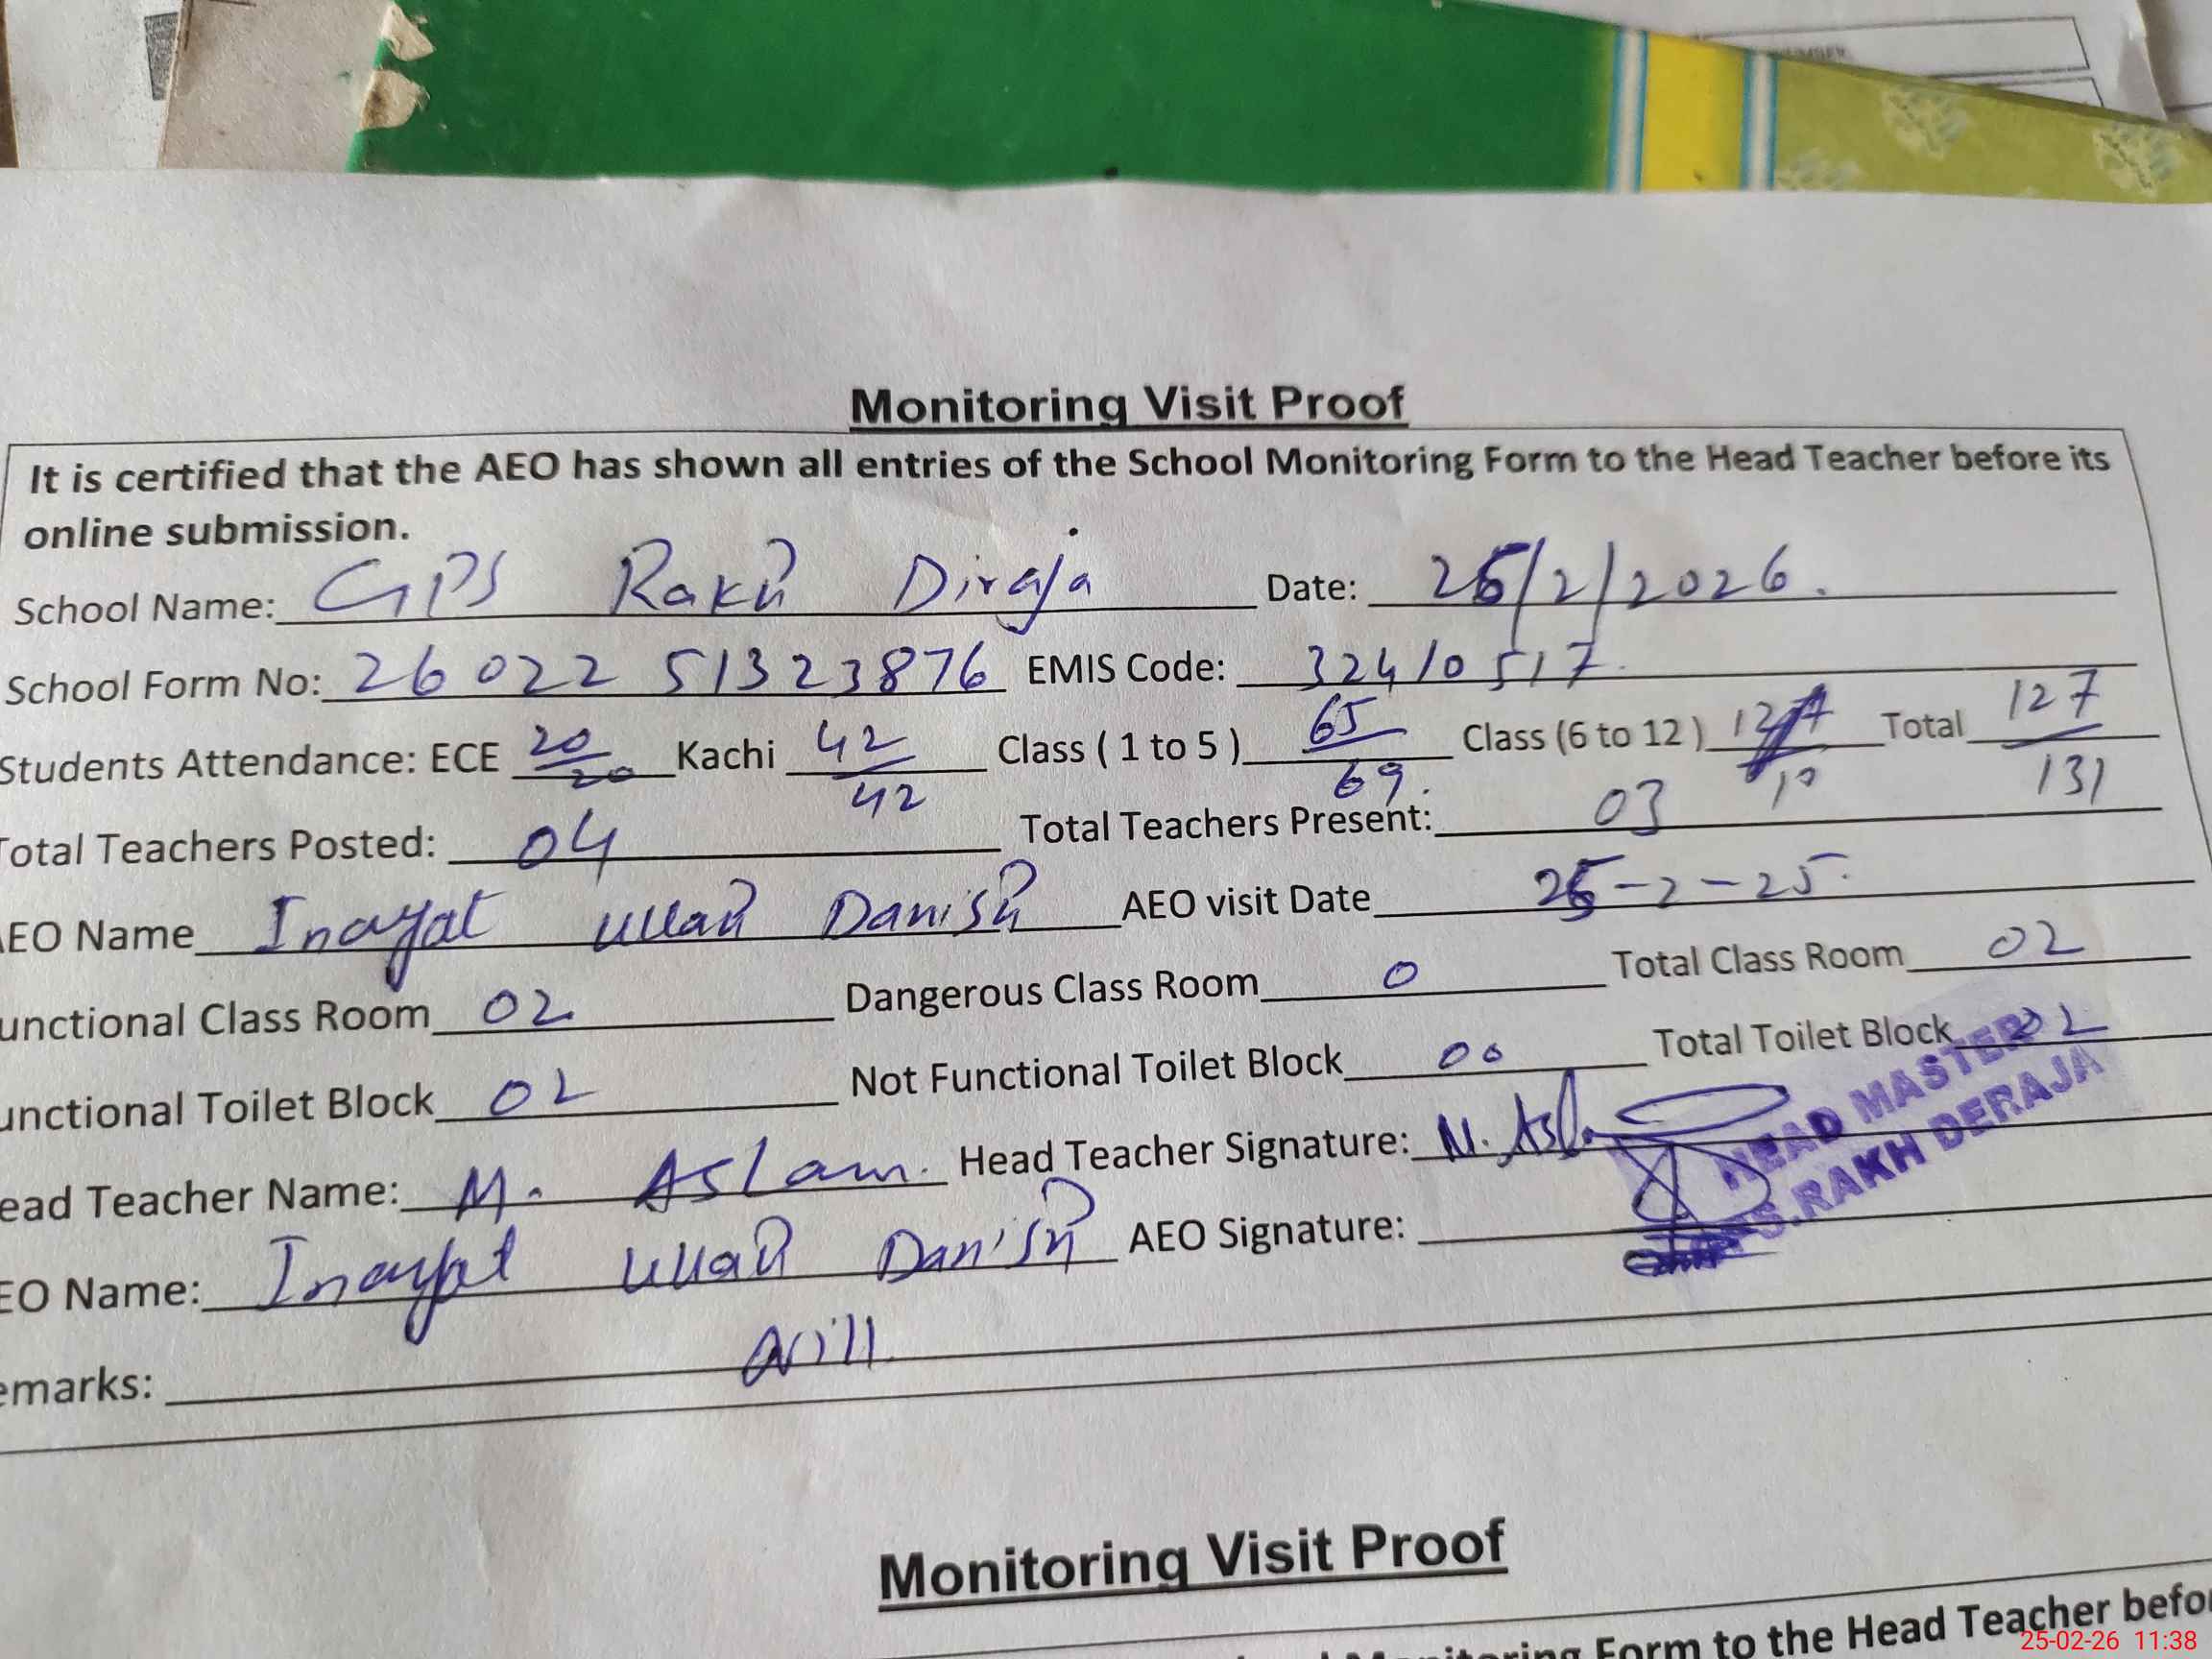 Monitoring Visit Proof
It is certified that the AEO has shown all entries of the School Monitoring Form to the Head Teacher before its
online submission.
School Name: GPS Rakh Diraja Date: 25/2/2026.
School Form No: 26022 51323876 EMIS Code: 32410517.
Students Attendance: ECE 20/20 Kachi 42/42 Class ( 1 to 5 ) 65/69. Class (6 to 12 ) Total 127/131
Total Teachers Posted: 04 Total Teachers Present: 03
AEO Name Inayat ullah Danish AEO visit Date 25-2-25.
unctional Class Room 02 Dangerous Class Room 0 Total Class Room 02
unctional Toilet Block 02 Not Functional Toilet Block 00 Total Toilet Block 02
ead Teacher Name: M. Aslam. Head Teacher Signature: M. Asl
HEAD MASTER
PS.RAKH DERAJA
EO Name: Inayat ullah Danish AEO Signature:
emarks: Nill.
Monitoring Visit Proof
Monitoring Form to the Head Teacher befor
25-02-26 11:38